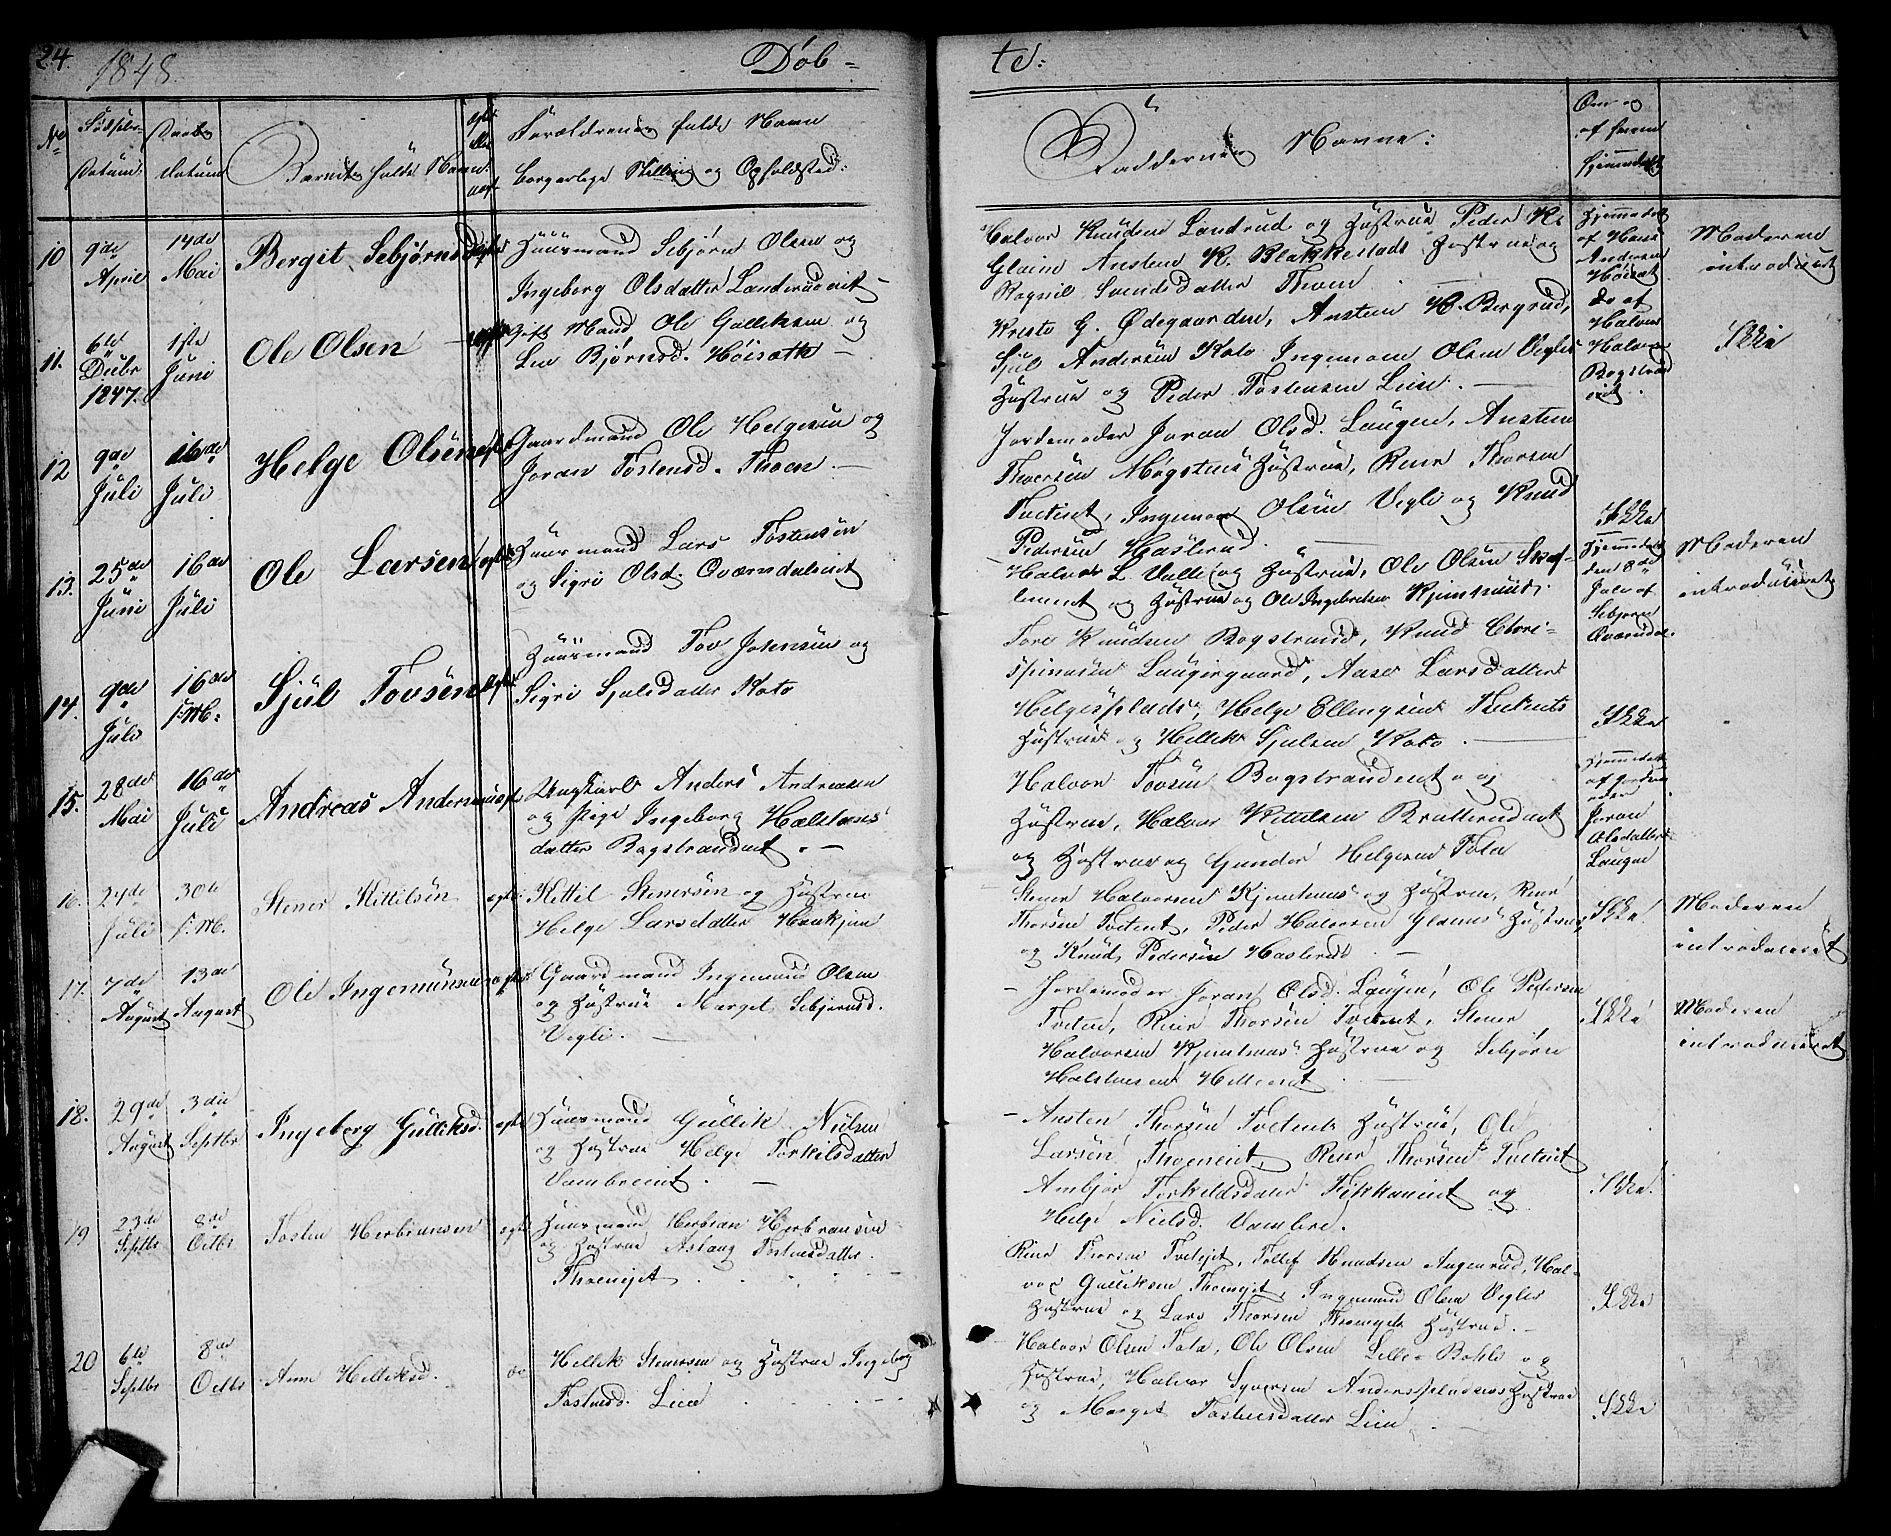 24.
1848.
Døb-
te:
No
Fødsels-
Datum:
Daabs
datum
Barnets fulde Navn.
Forældrenes fulde Navn
borgerlige Stilling og Opholdsted:
Faddernes Navne:
Om og
af hvem
hjemmedøbt
10
9de
April
14de
Mai
Bergit Sebjørnsd.
Huusmand Sebjørn Olsen og
Ingeborg Olsdatter Landerudeiet
Halvor Knudsen Landrud og Hustrue Peder K.
Glaim Ansten K. Blakkestads Hustrue og
Ragnil Svendsdatter Thoen
Hjemmedøbt
af Hans
Andersen
Høisæt
Moderen
introduceret
11.
6te
Debr
1847.
1ste
Juni
Ole Olsen
gift Mand Ole Gulliksen og
Liv Bjørnsd. Høisæth
Kresto G. Ødegaarden, Ansten H. Bergrud,
Sjul Andersen Kato Ingemom Olsen Vegles
Hustrue og Peder Tostensen Lien.
Do af
Halvor
Halvors
Bogstrand
eiet.
Ikke
12
9de
Juli
16de
Juli
Helge Olsen
Gaardmand Ole Helgesen og
Joran Tostensd. Thoen.
Jordemoder Joran Olsd. Laugen, Ansten
Thorsen Møgstens Hustrue, Reier Thorsen
Tvetenet, Ingemon Olsen Vegli og Knud
Pedersen Haslerud.
Ikke
13.
25de
Juni
16de
Juli
Ole Larsen
Huusmand Lars Tostensen
og Sigri Olsd. Qværndalseiet
Halvor L. Valle og Hustrue, Ole Olsen Skof-
lement og Hustrue og Ole Ingebretsen Kjemhuus.
Hjemmedøbt
den 8de
Julo af
Sebjørn
Qværndal.
Moderen
introduceret
14.
9de
Juli
16de
s: M:
Sjul Tovsen
Huusmand Tov Johnsen og
Sigri Sjulsdatter Kato
Tore Knudsen Bogstrand, Knud Chri-
stensen Laugegaard, Aase Larsdatter
Helgesplads, Helge Ellingsen Tvetenets
Hustrue og Hellik Sjulsen Kato.
Ikke
15.
28de
Mai
16de
Juli
Andreas Andersen
Ungkarl Anders Andreasen
og Pige Ingeborg Halstens
datter Bogstrandeiet.
Halvor Tovsen Bogstrandeiet og
Hustrue, Halvor Kittelsen Bratterudeiet
og Hustrue og Gunder Helgesen Tota
Hjemmedøbt
af Jorde
moder
Joran
Olsdatter
Laugen
16.
24de
Juli
30te
s: M.
Stener Kittilsen
Kittil Stenersen og Hustrue
Helge Larsdatter Haukjem
Stener Halvorsen Kjemhuus og Hustrue, Reier
Thorsen Tvetenet, Peder Halvorsen Glaims Hustrue
og Knud Pedersen Haslerud
Ikke!
Moderen
introduceret
17.
7de
August
13de
August
Ole Ingemunsen
Gaardmand Ingemund Olsen
og Hustrue Marget Sebjørnsd.
Vegli.
Jordemoder Joran Olsd. Laugen, Ole Pedersen
Tveten, Reier Thorsen Tvetenet, Stener
Halvorsen Kjemhuus Hustrue og Sebjørn
Halstensen Helleeiet
Ikke!
Moderen
introduceret
18.
29de
August
3die
Septbr
Ingeborg Gulliksd.
Huusmand Gullik Nielsen
og Hustrue Helge Torkilsdatter
Vambreeiet.
Ansten Thorsen Tvetenets Hustrue, Ole
Larsen Thoeneiet, Reier Thorsen Tvetenet
Ambjør Torkeldsdater Fekkaneiet og
Helge Nielsd. Vambre.
Ikke!
19
23de
Septbr
8de
Octbr
Tosten Herbransen
Huusmand Herbran Herbransen
og Hustrue Aslaug Tostensdatter.
Thoeneiet
Reier Thorsen Tvetejet, Tollef Knudsen Aagerud, Hal-
vor Gulliksen Thoenjet, Ingemund Olsen Vegles
Hustrue og Lars Thorsen Thoenjets Hustrue.
Ikke
20
6te
Septbr
8de
Octbr
Anne Helliksd.
do
Hellik Stenersen og Hustrue Ingeborg
Tostensd. Lien
Halvor Olsen Tota, Ole Olsen Lille-Bakke og
Hustrue, Halvor Syversen Anderspladsens Hustrue
og Marget Tostensdatter Lien
Ikke